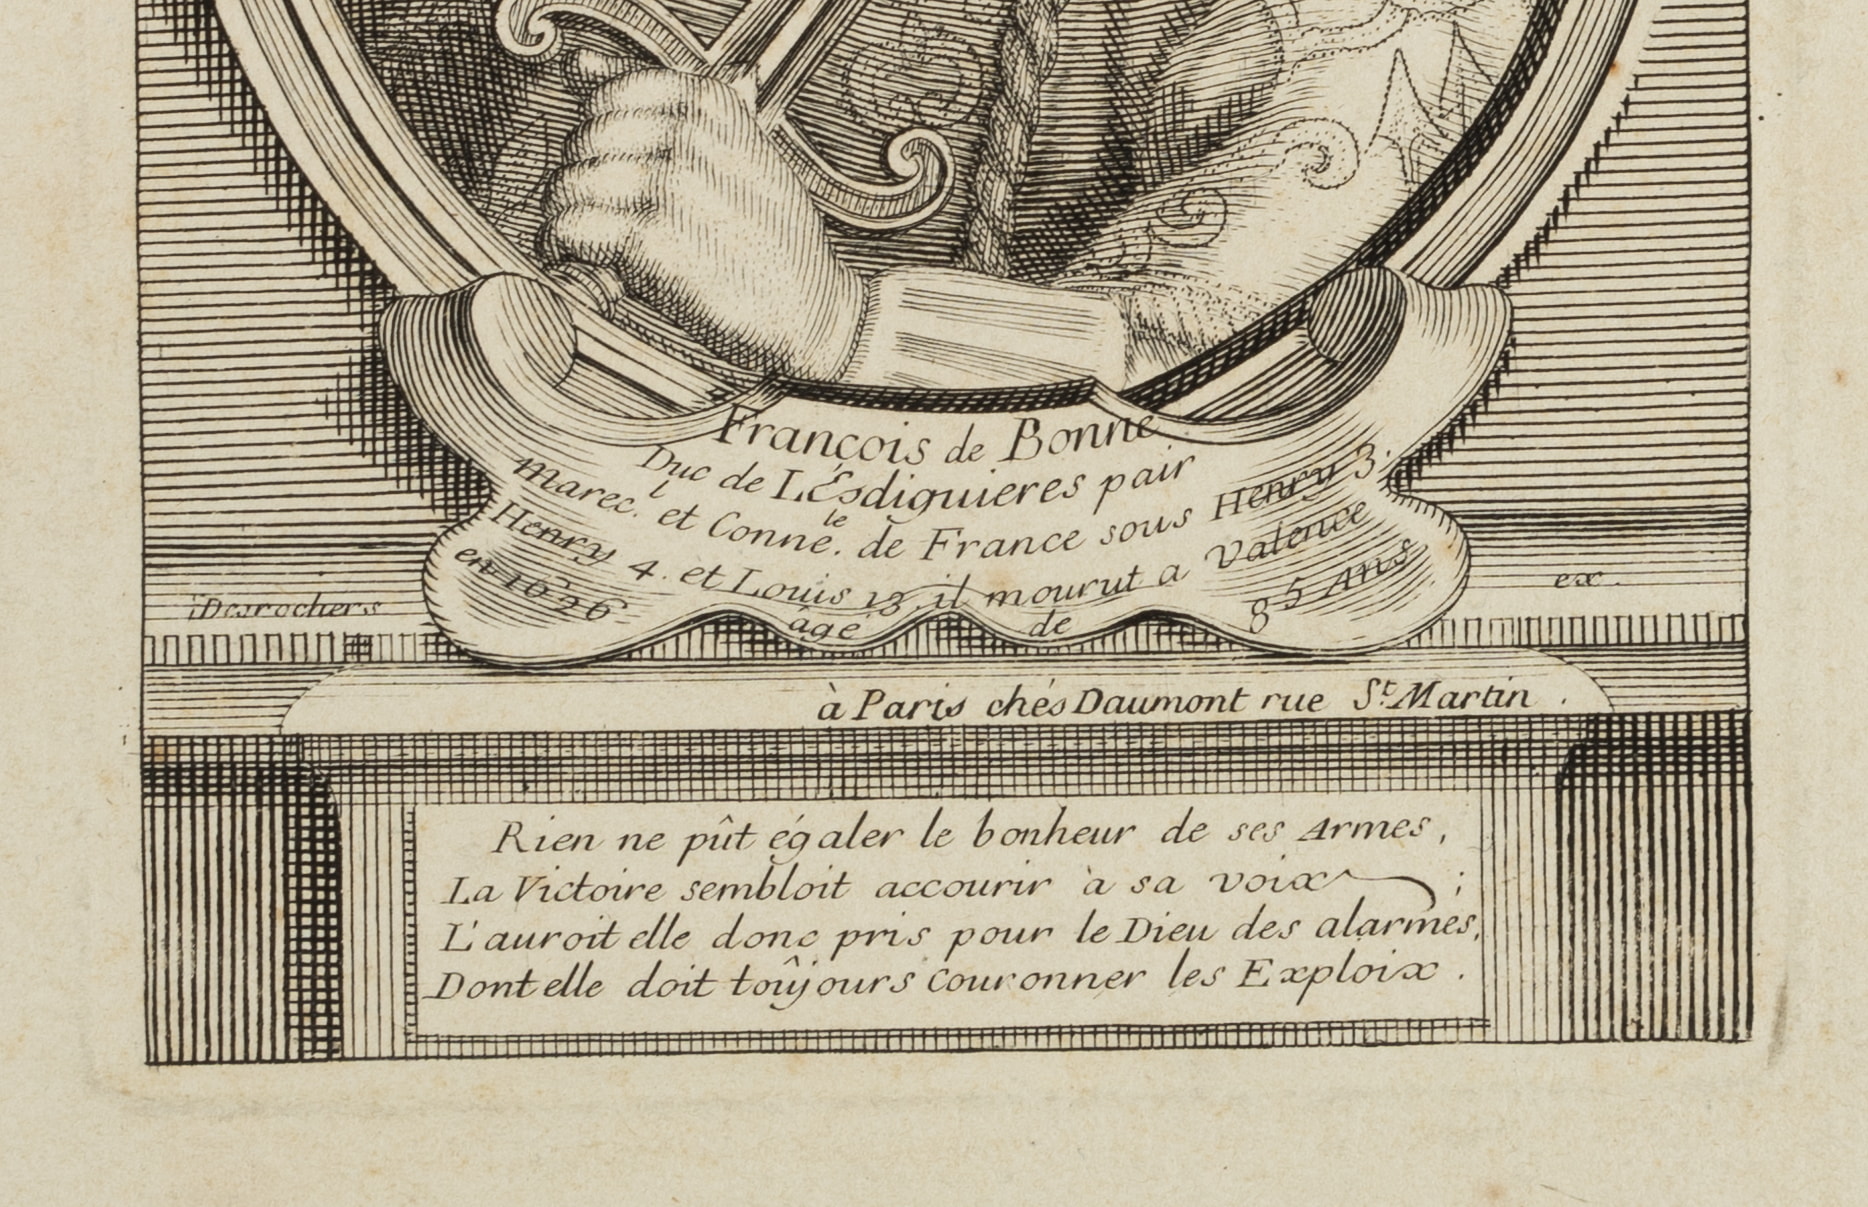 François de Bonne
Duc de Lésdiguieres pair
Marec.l et Conne.le de France sous Henry 3.
Henry 4. et Louis 13. il mourut a Valence
en 1626 âgé de 85 Ans
Desrochers ex.
à Paris chés Daumont rue St. Martin.
Rien ne pût égaler le bonheur de ses Armes,
La Victoire sembloit accourir à sa voix ;
L'auroit elle donc pris pour le Dieu des alarmes,
Dont elle doit toûjours Couronner les Exploix.